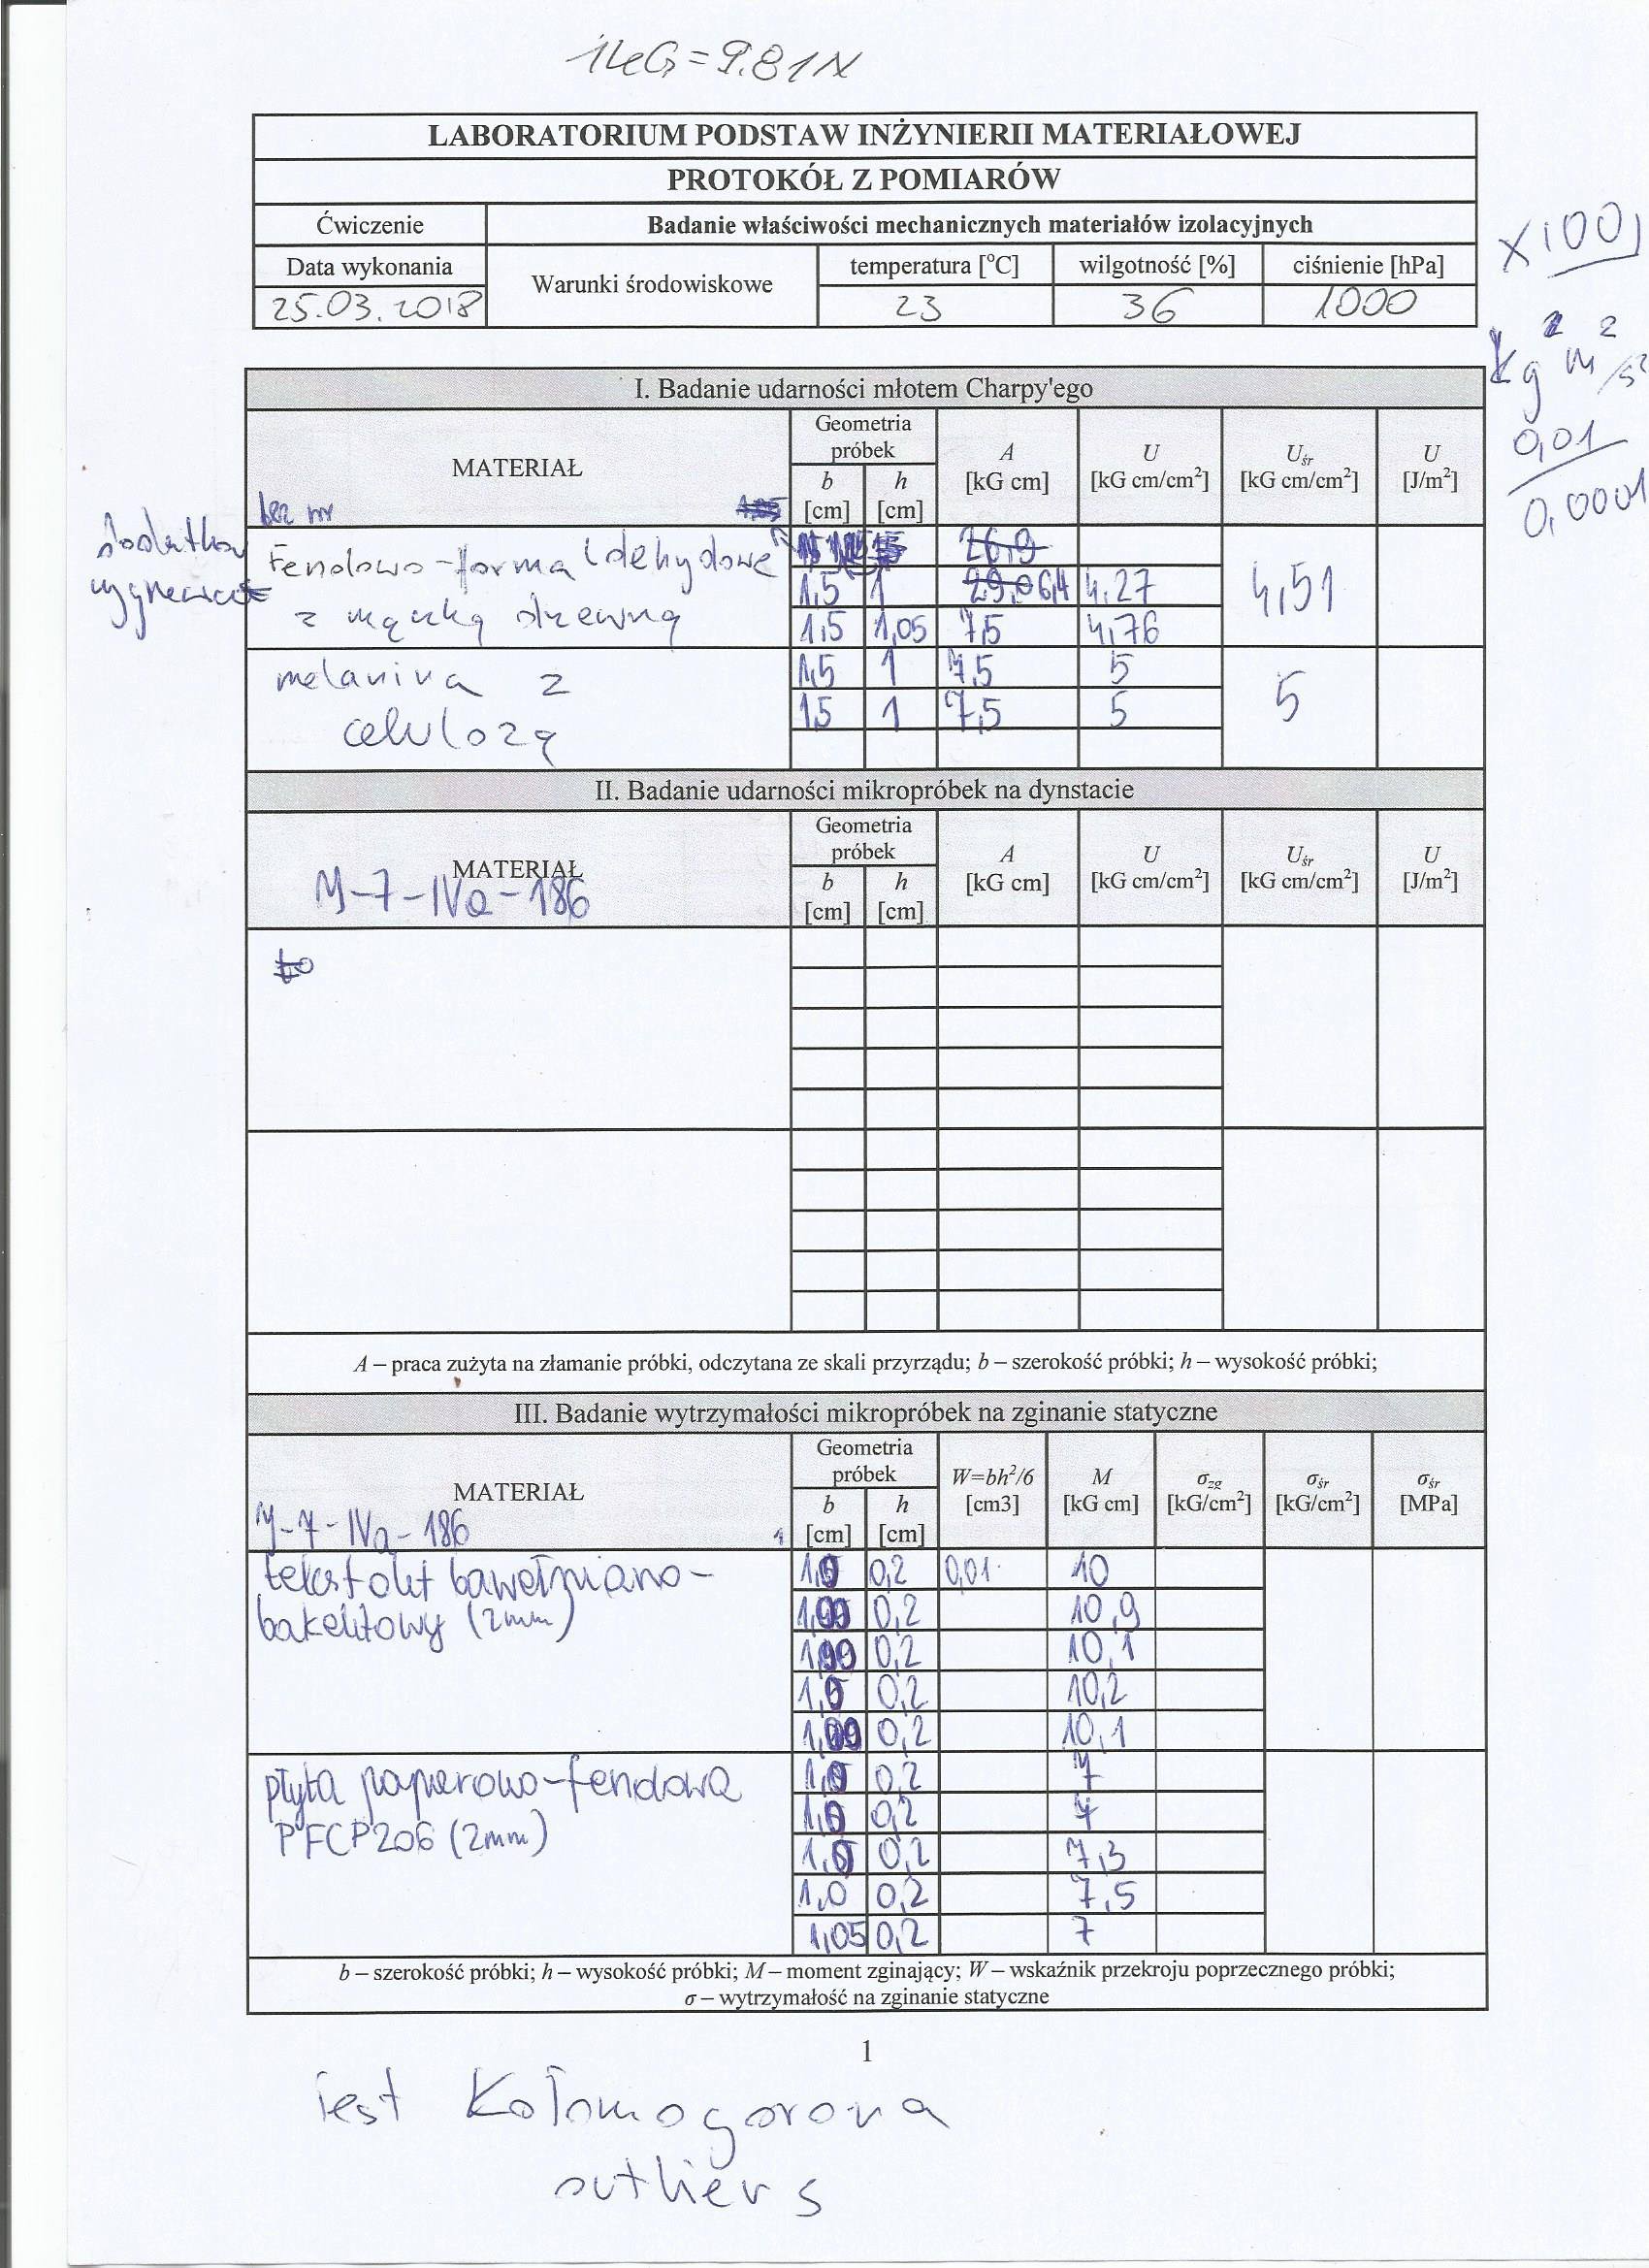 1kG=9.81N
LABORATORIUM PODSTAW INŻYNIERII MATERIAŁOWEJ
PROTOKÓŁ Z POMIARÓW
Ćwiczenie Badanie właściwości mechanicznych materiałów izolacyjnych
Data wykonania Warunki środowiskowe temperatura [°C] wilgotność [%] ciśnienie [hPa]
25.03.2018 23 36 1000
x100
kg m²/s²
0,01
0,0001
I. Badanie udarności młotem Charpy'ego
MATERIAŁ Geometria próbek A [kG cm] U [kG cm/cm²] Uśr [kG cm/cm²] U [J/m²]
bez nr b [cm] h [cm]
Fenolowo-formaldehydowe 26,9
z mączką drzewną 1,5 1 6,4 4,27 4,51
1,5 1,05 7,5 4,76
melanina z 1,5 1 7,5 5 5
celulozą 1,5 1 7,5 5
II. Badanie udarności mikropróbek na dynstacie
MATERIAŁ Geometria próbek A [kG cm] U [kG cm/cm²] Uśr [kG cm/cm²] U [J/m²]
M-7-IVa-186 b [cm] h [cm]
A – praca zużyta na złamanie próbki, odczytana ze skali przyrządu; b – szerokość próbki; h – wysokość próbki;
III. Badanie wytrzymałości mikropróbek na zginanie statyczne
MATERIAŁ Geometria próbek W=bh²/6 [cm3] M [kG cm] σzg [kG/cm²] σśr [kG/cm²] σśr [MPa]
M-7-IVa-186 b [cm] h [cm]
tekstolit bawełniano- 1,0 0,2 0,01 10
bakelitowy (2mm) 0,2 10,9
0,2 10,1
1,0 0,2 10,2
0,2 10,1
płyta papierowo-fenolowa 1,0 0,2 7
PFCP206 (2mm) 1,0 0,2 7
1,0 0,2 7,3
1,0 0,2 7,5
1,05 0,2 7
b – szerokość próbki; h – wysokość próbki; M – moment zginający; W – wskaźnik przekroju poprzecznego próbki;
σ – wytrzymałość na zginanie statyczne
1
test Kołomogorova
outliers